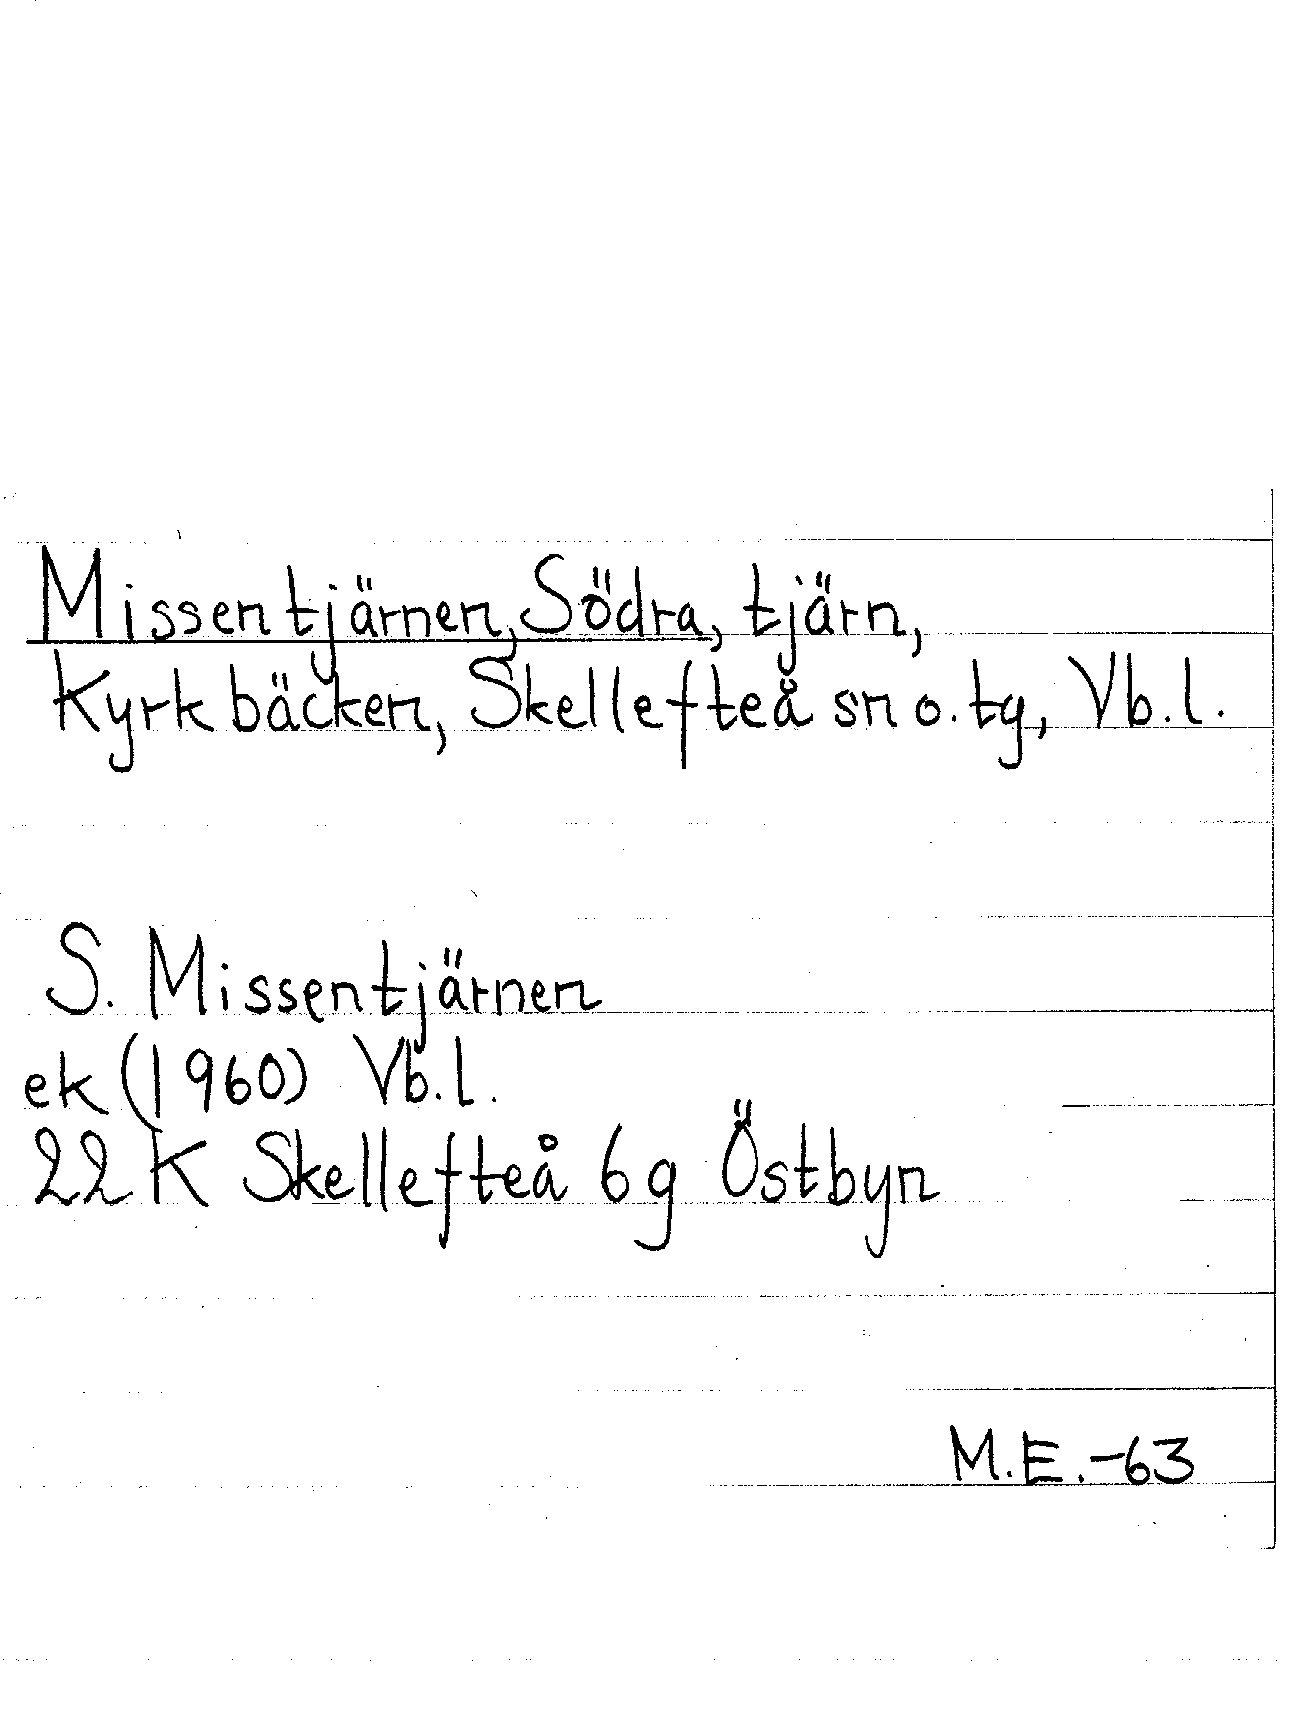 Missentjärnen, Södra, tjärn,
Kyrkbäcken, Skellefteå sn o. tg, Vb. l.
S. Missentjärnen
ek (1960) Vb. l.
22 K Skellefteå 6 g Östbyn
M.E. -63